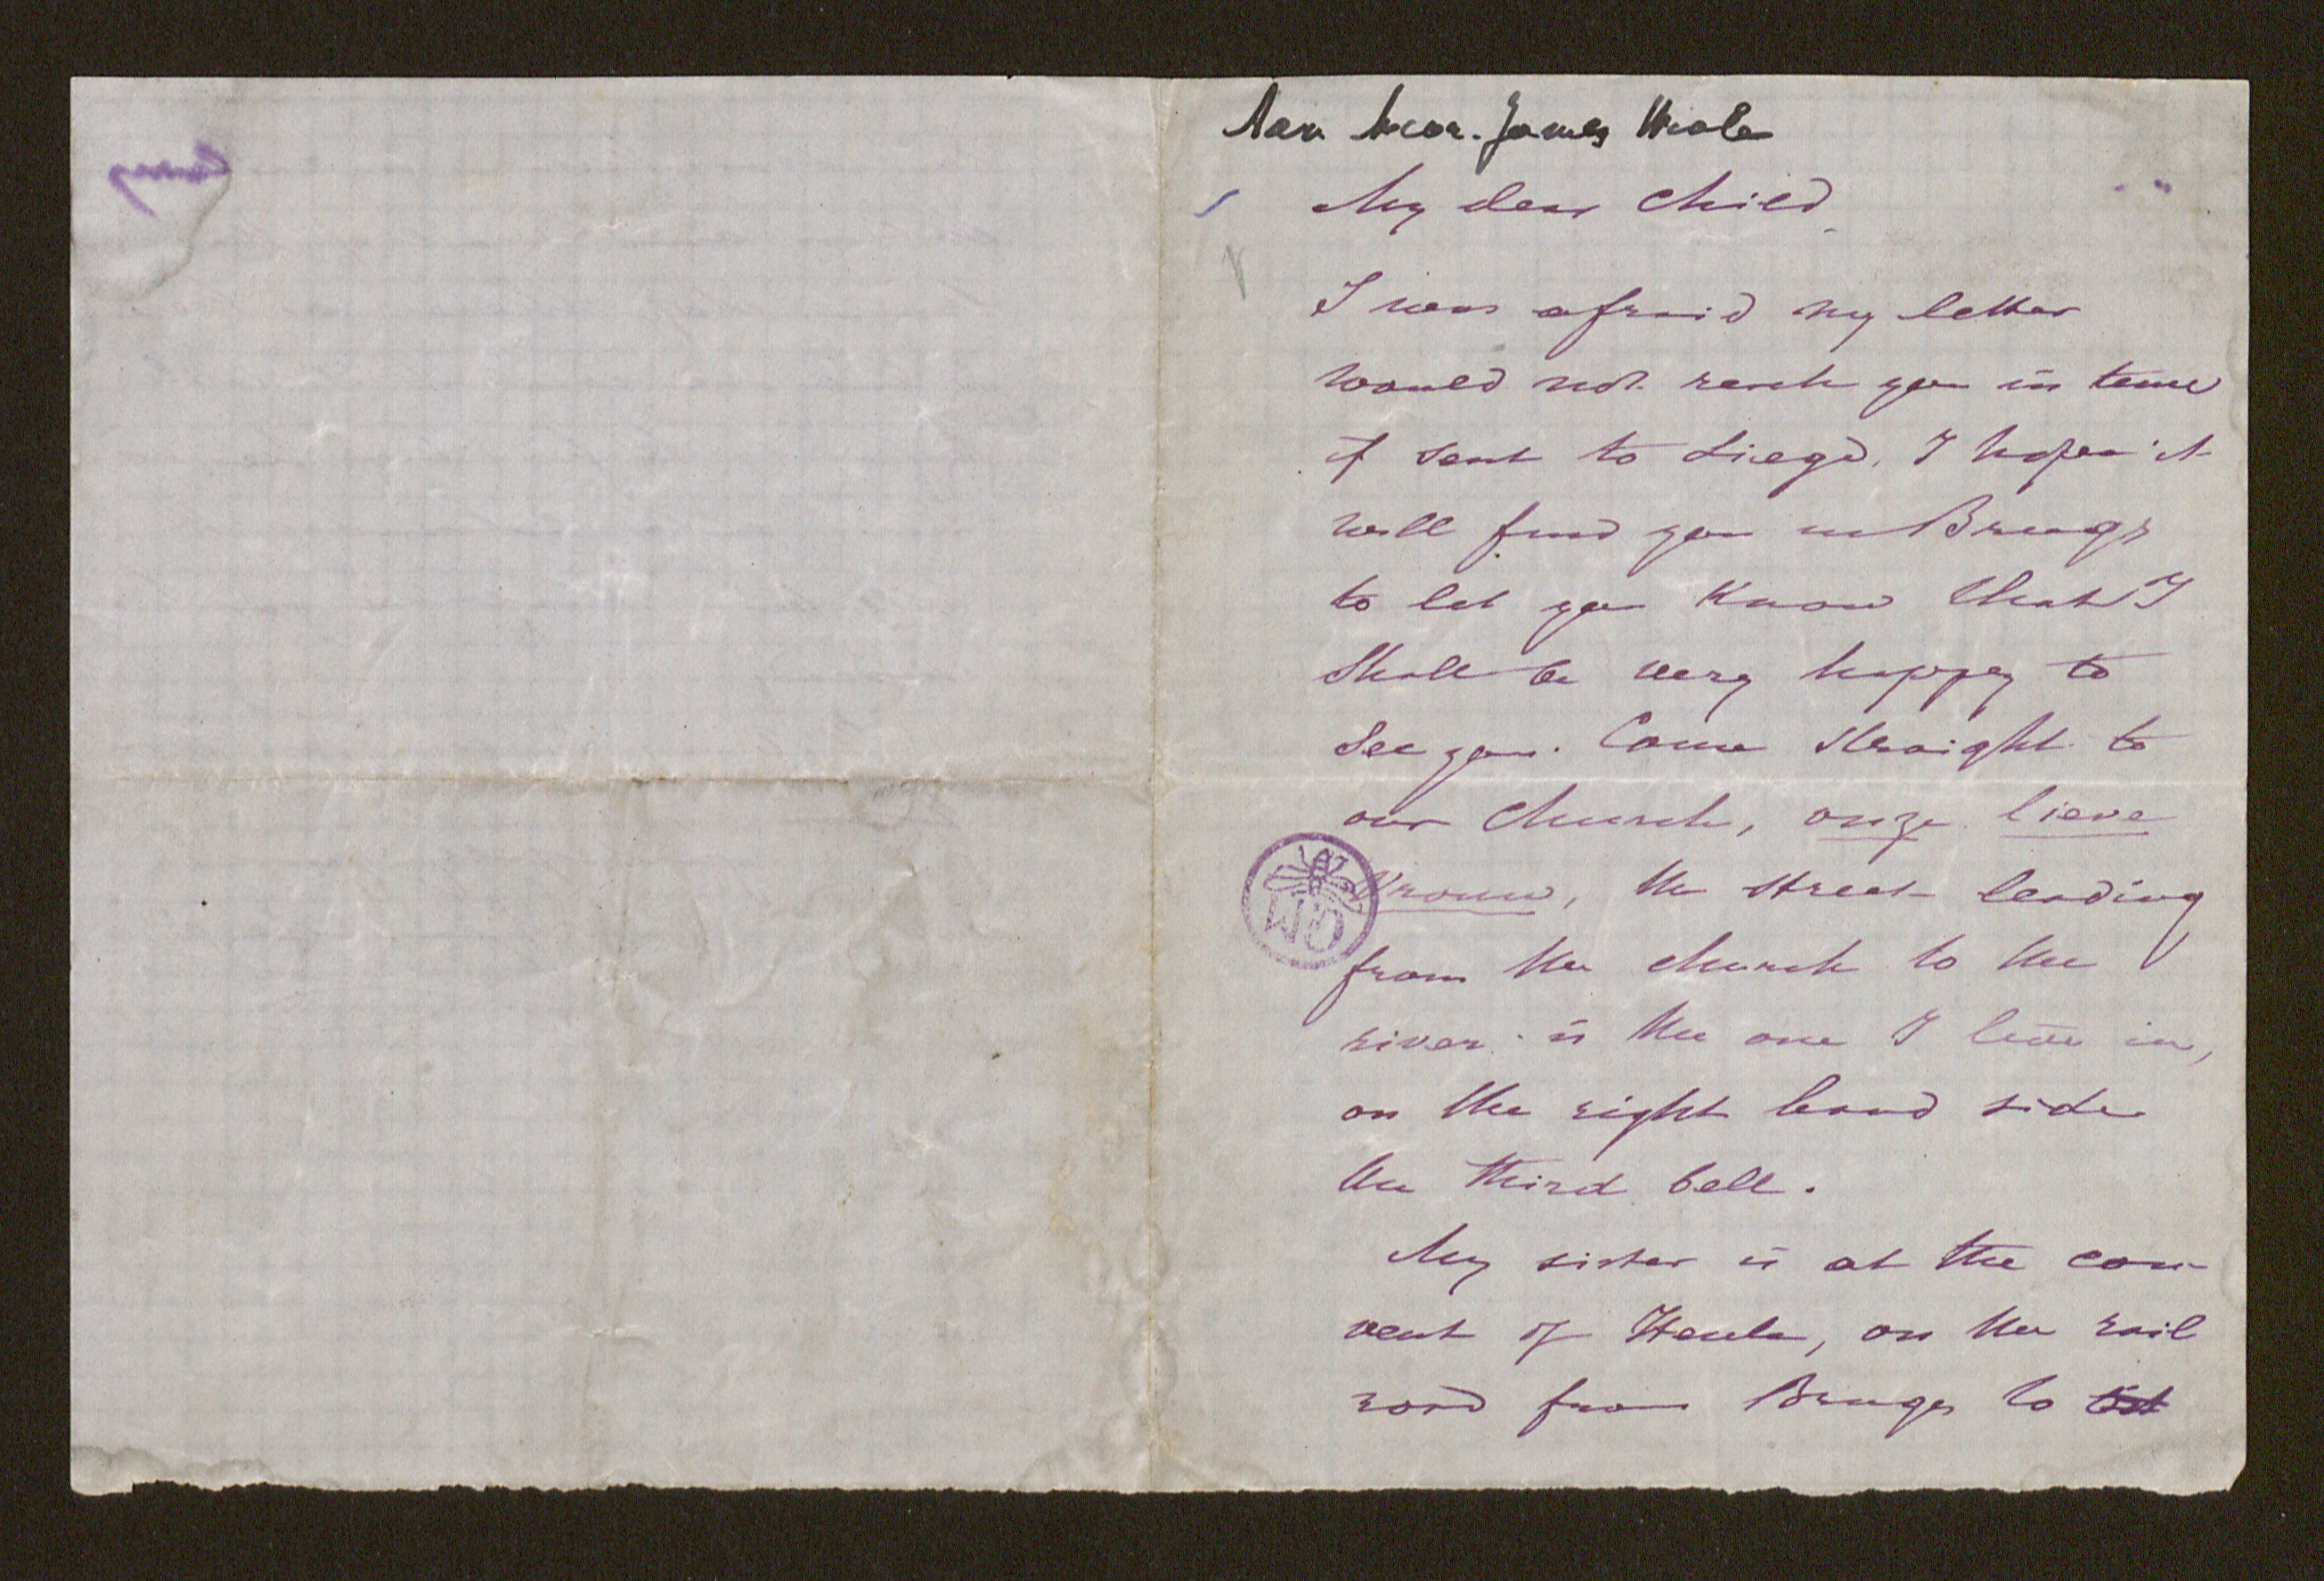 Aan Mevr. James Weale
My dear child
I was afraid my letter
would not reach you in time
if sent to Liege. I hope it
will find you in Bruges
to let you know that I
shall be very happy to
see you. Come straight to
our church, onze lieve
Vrouw, the street leading
from the church to the
river is the one I live in,
on the right hand side
the third bell.
My sister is at the con-
vent of Heule, on the rail
road from Bruges to
GM